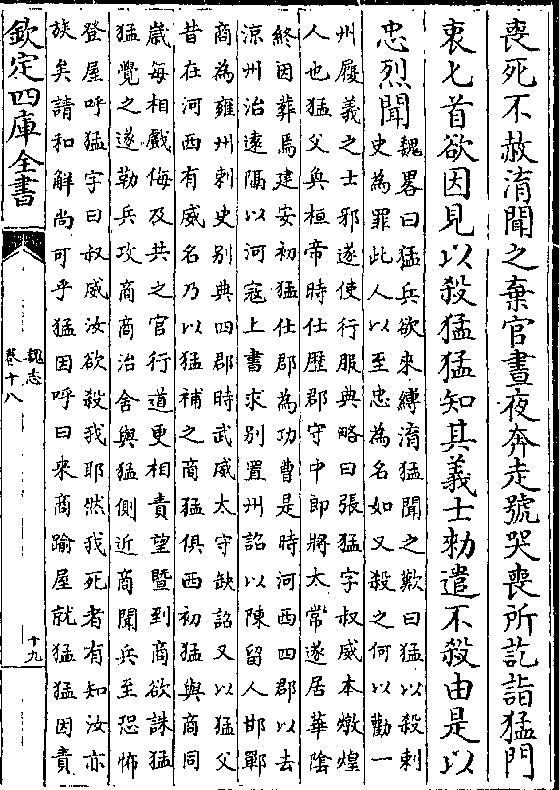 喪死不赦淯聞之棄官晝夜奔走號哭喪所訖詣猛門
衷匕首欲因見以殺猛猛知其義士勑遣不殺由是以
忠烈聞
魏畧曰猛兵欲來縛淯猛聞之歎曰猛以殺刺
史為罪此人以至忠為名如又殺之何以勸一
州履義之士邪遂使行服典略曰張猛字叔威本燉煌
人也猛父奐桓帝時仕歴郡守中郎將太常遂居華陰
終因葬焉建安初猛仕郡為功曹是時河西四郡以去
涼州治遠隔以河寇上書求别置州詔以陳留人邯鄲
商為雍州刺史别典四郡時武威太守缺詔又以猛父
昔在河西有威名乃以猛補之商猛俱西初猛與商同
嵗每相戲侮及共之官行道更相責望暨到商欲誅猛
猛覺之遂勒兵攻商商治舍與猛側近商聞兵至恐怖
登屋呼猛字曰叔威汝欲殺我耶然我死者有知汝亦
族矣請和解尚可乎猛因呼曰來商踰屋就猛猛因責
欽定四庫全書
魏志
卷十八
十九